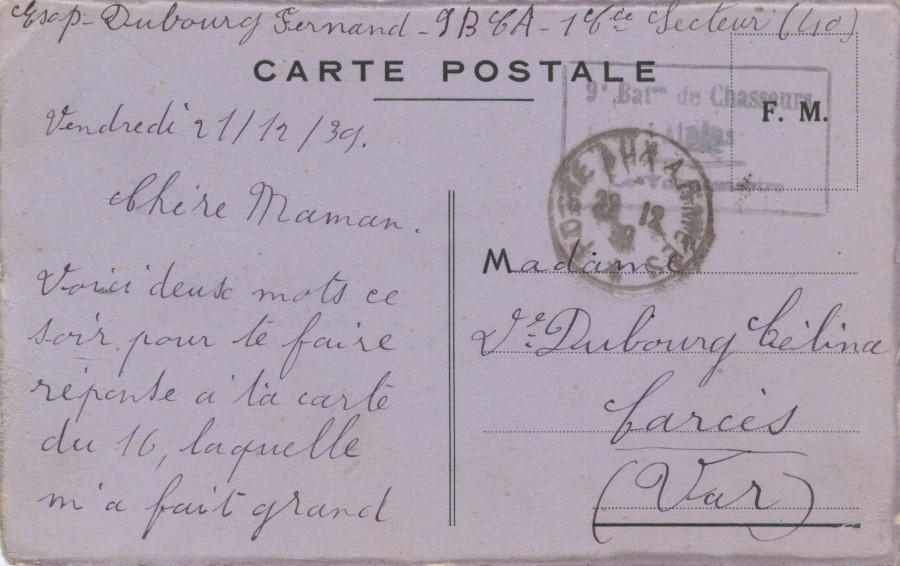 Exp- Dubourg Fernand - 9BCA - 1 Cie Secteur (40)
CARTE POSTALE
9e Baton de Chasseurs
Alpins
F. M.
POSTE AUX ARMEES
12
Vendredi 21/12/39.
Chère Maman.
Voici deux mots ce
soir pour te faire
réponse à ta carte
du 16, laquelle
m'a fait grand
Madame
Ve Dubourg Célina
Carcès
(Var)